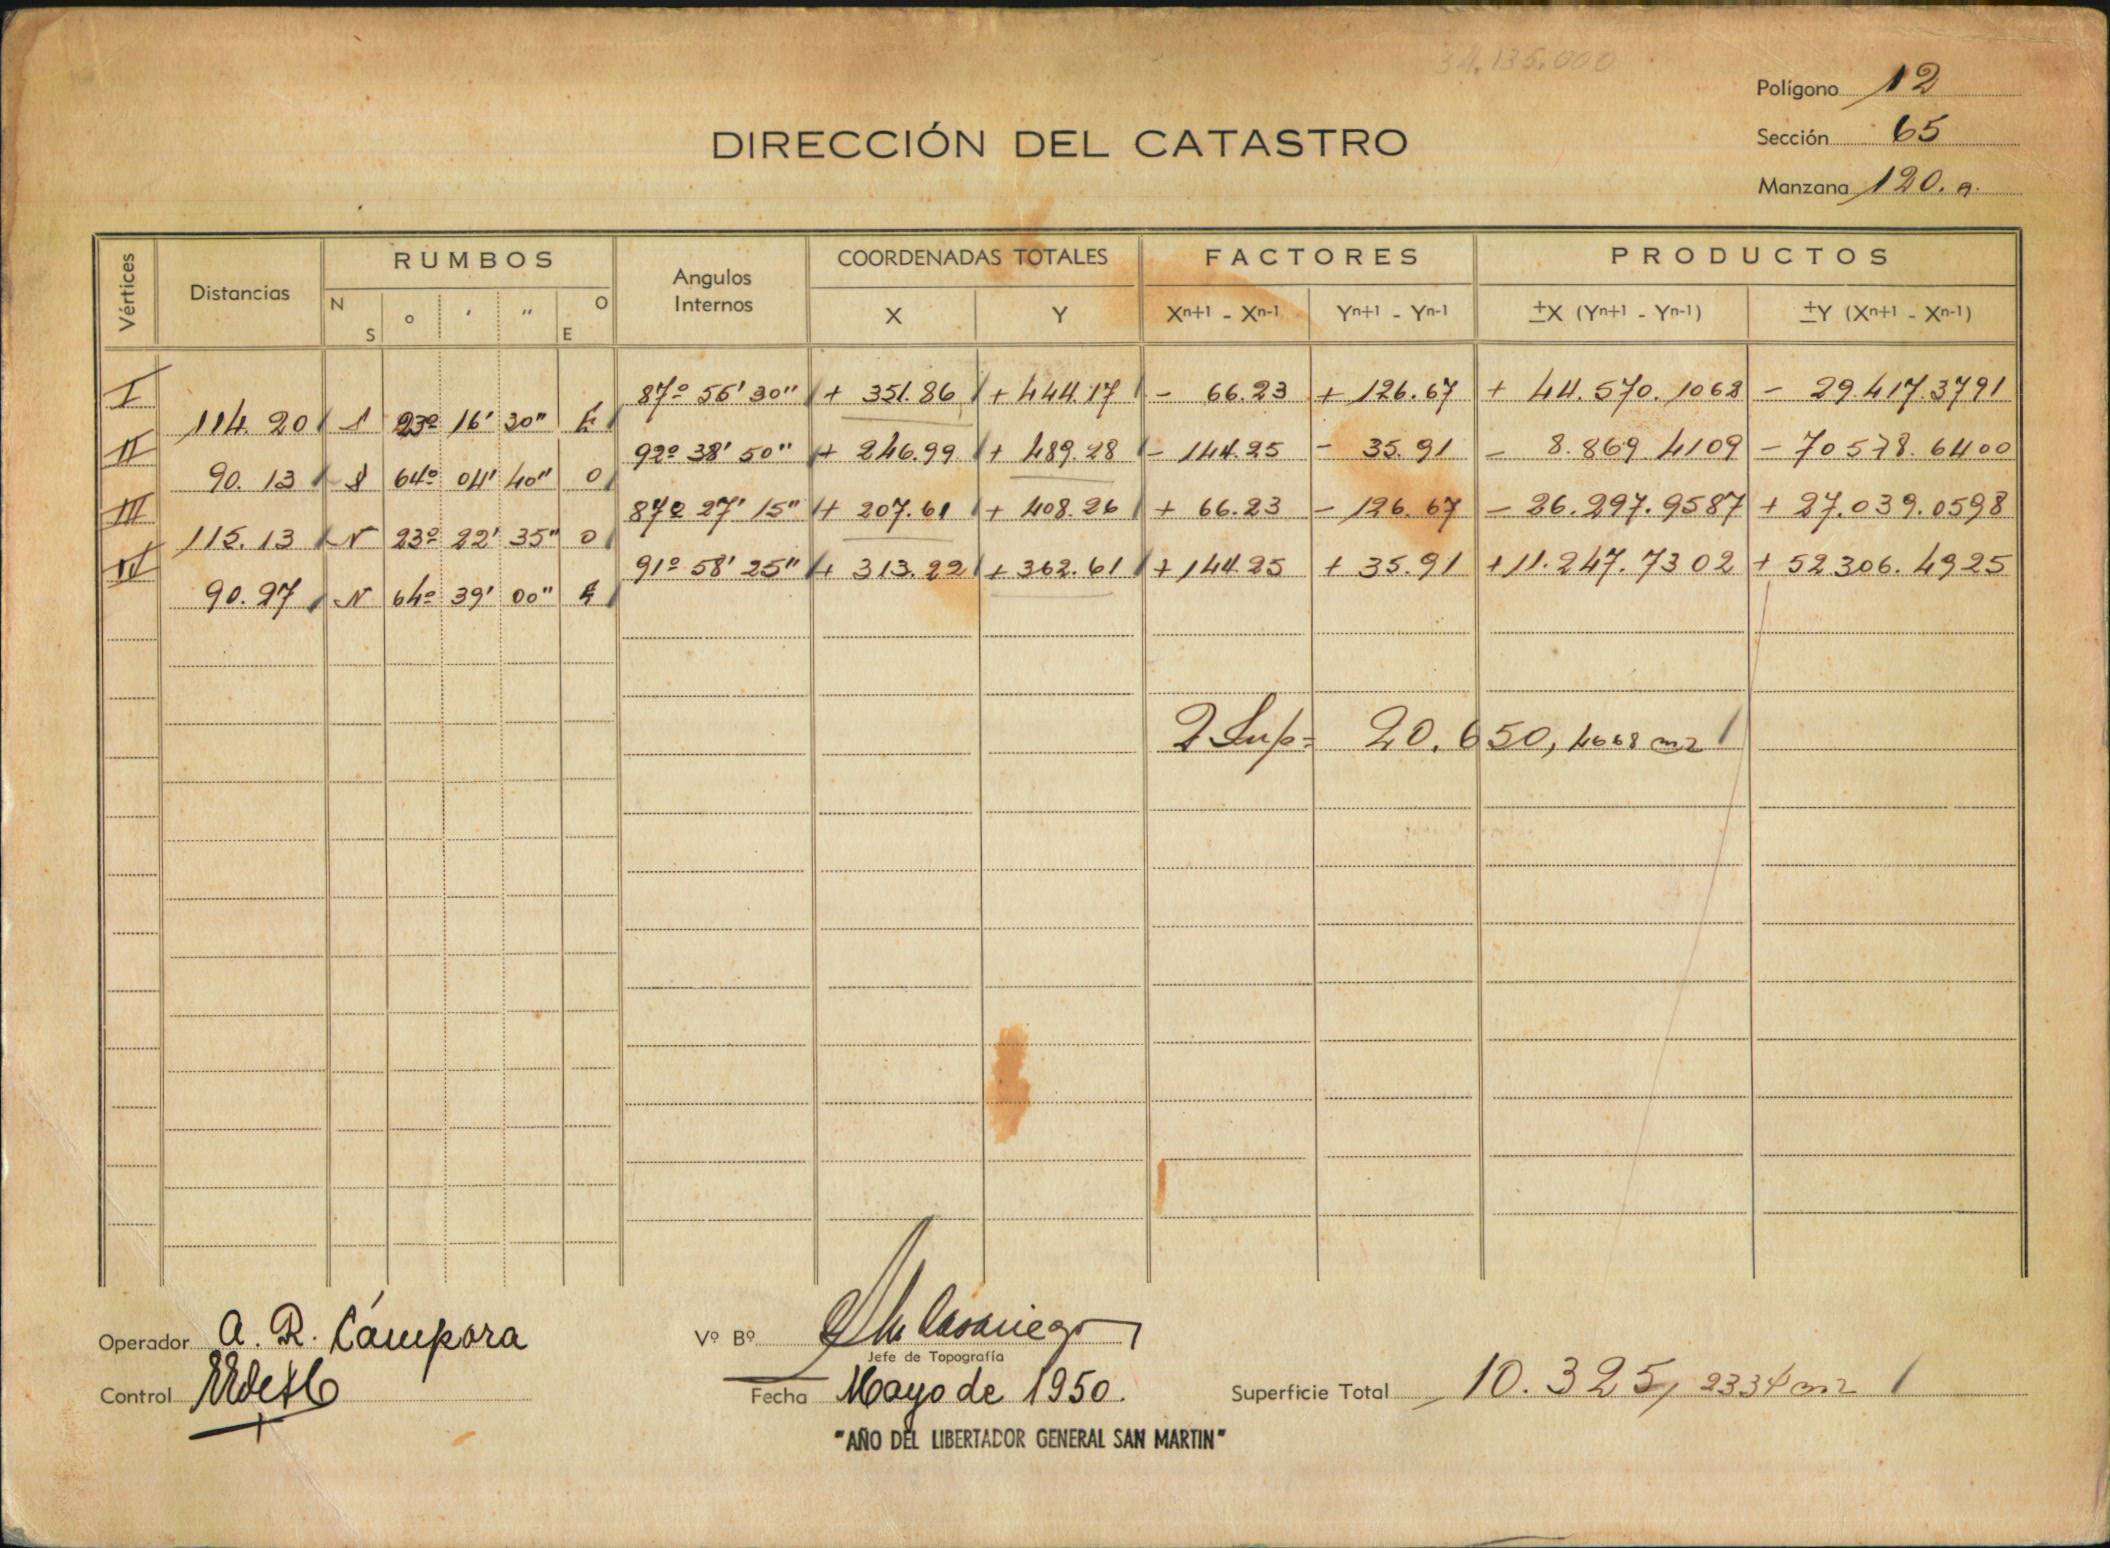 34.135.000
Polígono 12
DIRECCIÓN DEL CATASTRO
Sección 65
Manzana 120. a.
Vértices
Distancias
RUMBOS
N S ° ' " O E
Angulos Internos
COORDENADAS TOTALES
X Y
FACTORES
Xn+1 - Xn-1 Yn+1 - Yn-1
PRODUCTOS
±X (Yn+1 - Yn-1) ±Y (Xn+1 - Xn-1)
I 87º 55' 30" + 351.86 + 444.17 - 66.23 + 126.67 + 44.570.1062 - 29.417.3791
114.20 S 23º 16' 30" E
II 92º 38' 50" + 246.99 + 489.28 - 144.25 - 35.91 - 8.869.4109 - 70578.6400
90.13 S 64º 04' 40" O
III 87º 27' 15" + 207.61 + 408.26 + 66.23 - 126.67 - 26.297.9587 + 27.039.0598
115.13 N 23º 22' 35" O
IV 91º 58' 25" + 313.22 + 362.61 + 144.25 + 35.91 + 11.247.7302 + 52306.4925
90.27 N 64º 39' 00" E
2 Sup= 20.650,4668 m2
Operador A. R. Cámpora
Vº Bº
Jefe de Topografía
Control
Fecha Mayo de 1950.
Superficie Total 10.325,2334 m2
"AÑO DEL LIBERTADOR GENERAL SAN MARTIN"